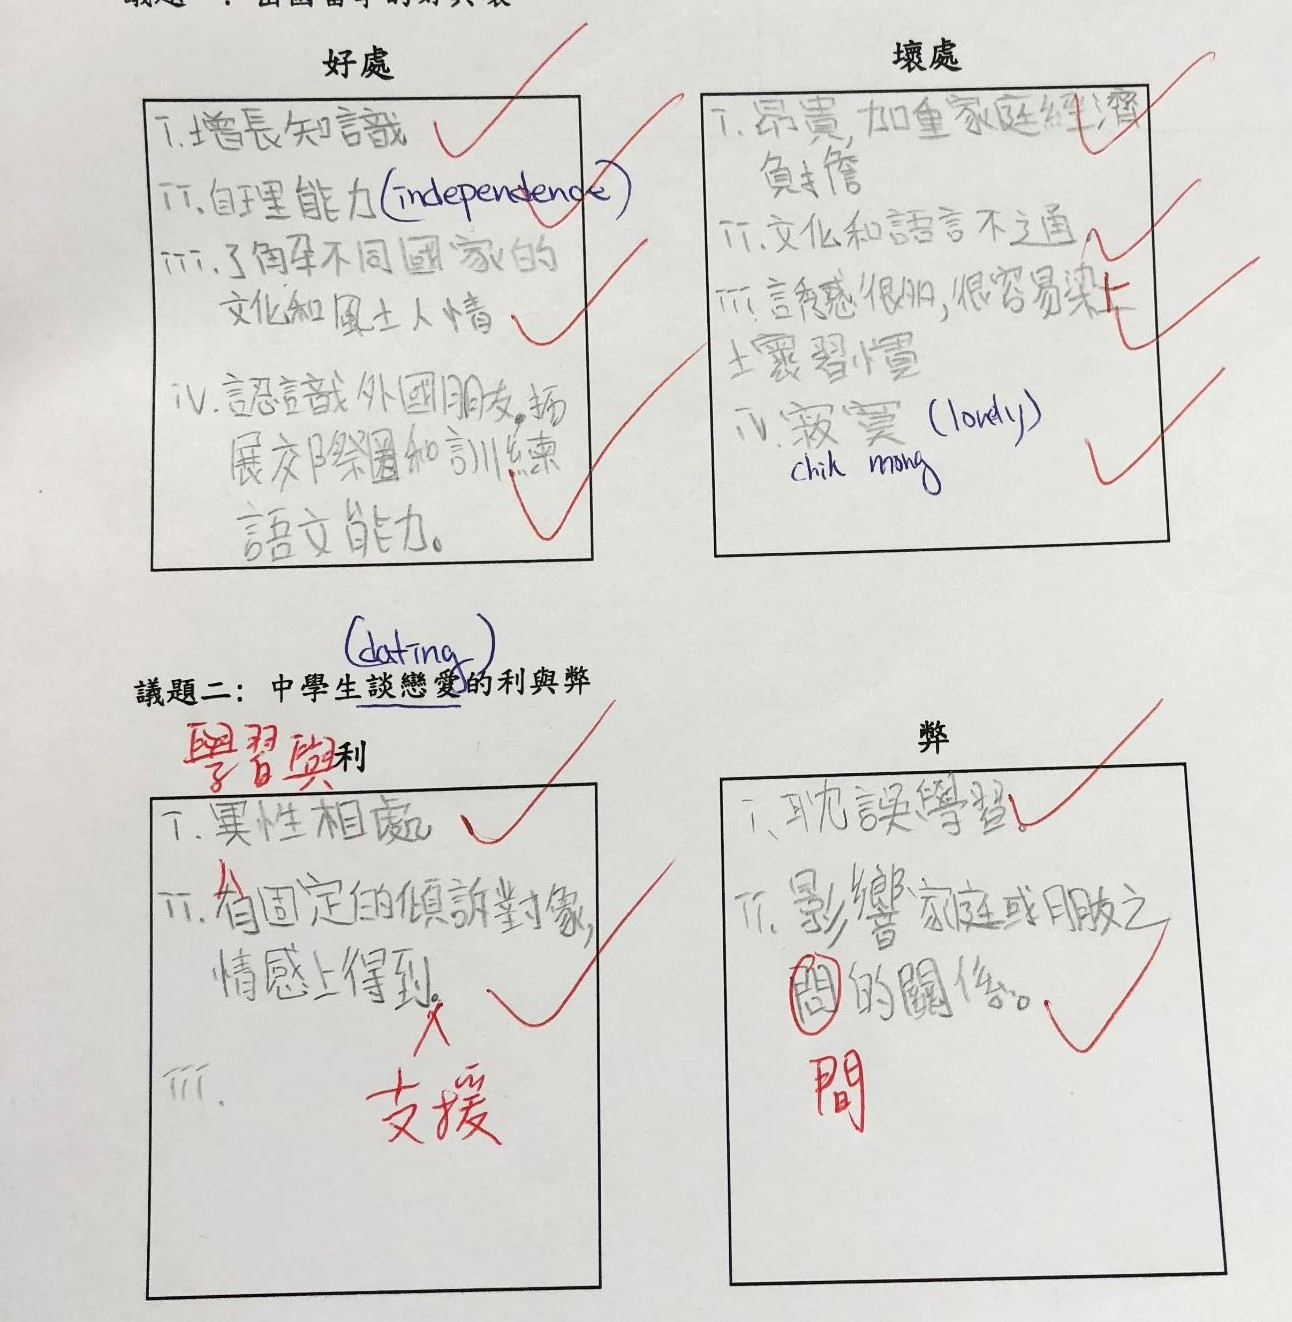 好處
i. 增長知識
ii. 自理能力 (independence)
iii. 了解不同國家的
文化和風土人情
iv. 認識外國朋友。拓
展交際圈和訓練
語文能力。
壞處
i. 昂貴, 加重家庭經濟
負擔
ii. 文化和語言不通
iii. 誘惑很多, 很容易染上
壞習慣
iv. 寂寞 (lonely)
chik mong
(dating)
議題二：中學生談戀愛的利與弊
利
學習與
i. 異性相處
ii. 有固定的傾訴對象,
情感上得到。
支援
iii.
弊
i. 耽誤學習。
ii. 影響家庭或朋友之
問的關係。
間